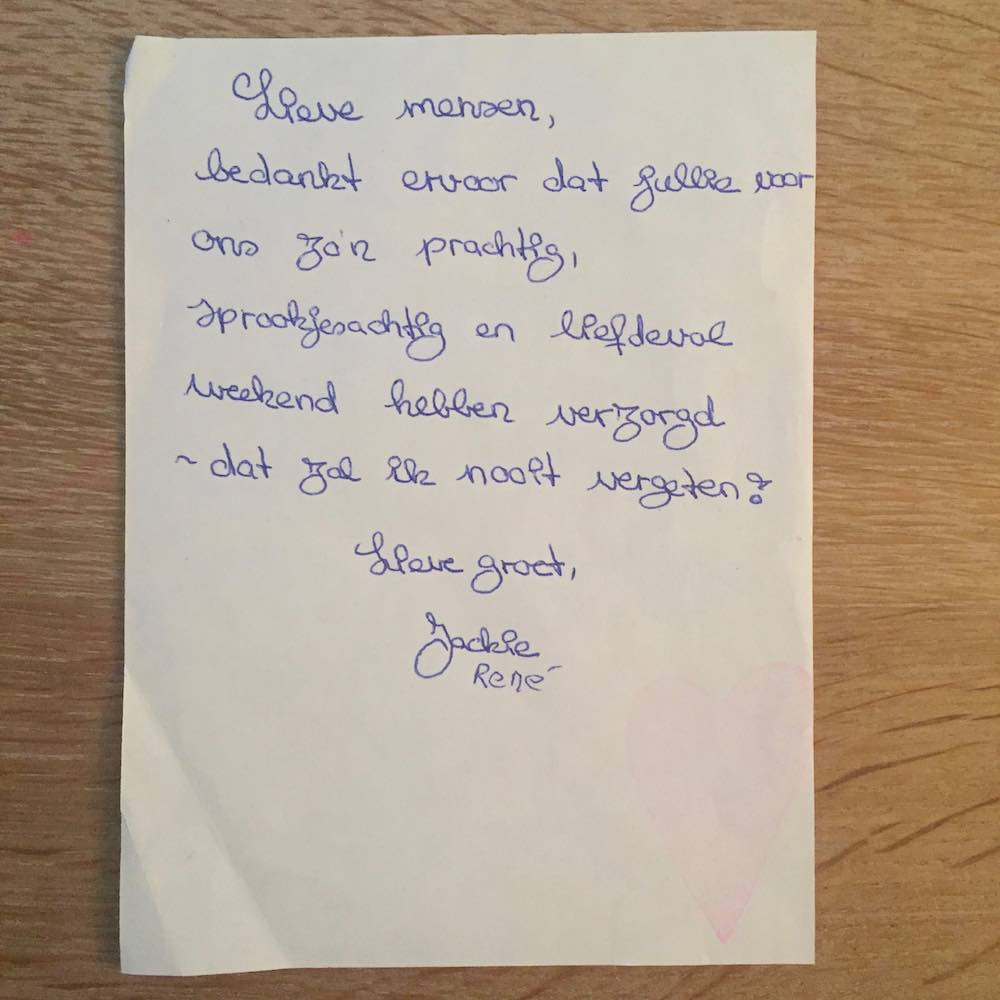 Lieve mensen,
bedankt ervoor dat jullie voor
ons zo'n prachtig,
sprookjesachtig en liefdevol
weekend hebben verzorgd
~ dat zal ik nooit vergeten!
Lieve groet,
Jackie
René